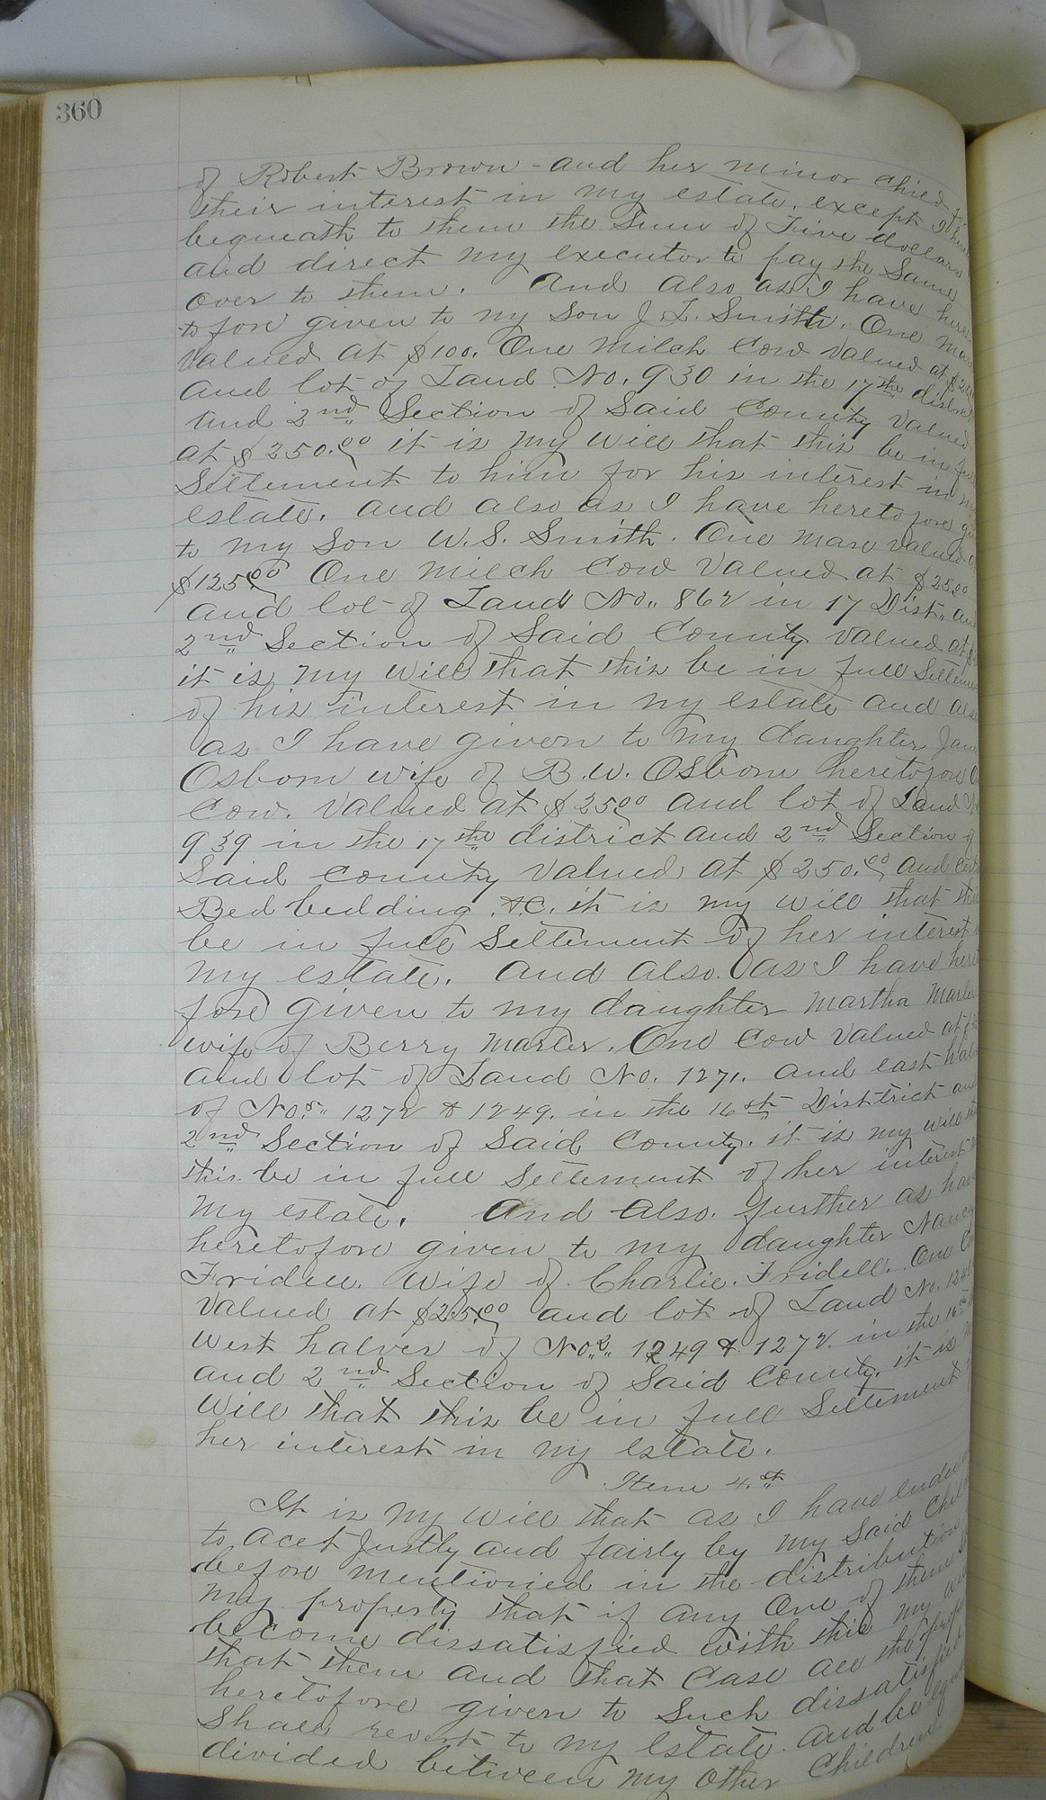 360
of Robert Brown - and her minor child
their interest in my estate. except I
bequeath to them the Sum of Five dollars
and direct my executor to pay the Same
over to them. And also as I have here
to fore given to my Son J. L. Smith. One
Valued at $100. One milch Cow Valued at
and lot of Land No. 930 in the 17th district
and 2nd Section of Said County Valued
at $250.00 it is my will that this be in
Settlement to him for his interest in
estate. and also as I have heretofore
to my Son W. S. Smith. One mare valued
$125.00 One milch Cow Valued at $25.00
and lot of Land No. 862 in 17 Dist. and
2nd Section of Said County Valued at
it is my will that this be in full
of his interest in my estate and
as I have given to my daughter
Osborn wife of B. W. Osborn heretofore
Cow. Valued at $25.00 and lot of Land
939 in the 17th district and 2nd Section
Said County Valued at $250.00 and
Bed bedding &C. it is my will that
be in full Settlement of her interest
my estate. And also as I have here
fore given to my daughter Martha
wife of Berry Marler. One Cow Valued at
and lot of Land No. 1271. and east
of Nos. 1272 & 1249. in the 16th District
2nd Section of Said County. it is my will
this be in full Settlement of her interest
my estate. And also. further as
heretofore given to my daughter Nancy
Fridell. wife of Charlie. Fridell. One
Valued at $25.00 and lot of Land No.
West halves of Nos. 1249 & 1272. in the 16th
and 2nd Section of Said County. it is
Will that this be in full Settlement
her interest in my Estate.
Item 4th
It is my will that as I have
to acct Justly and fairly by my Said
before mentioned in the distribution
my property that if any One of them
become dissatisfied with this my
that them and that case all the
heretofore given to Such
Shall revert to my Estate. and be
divided between my other Children.